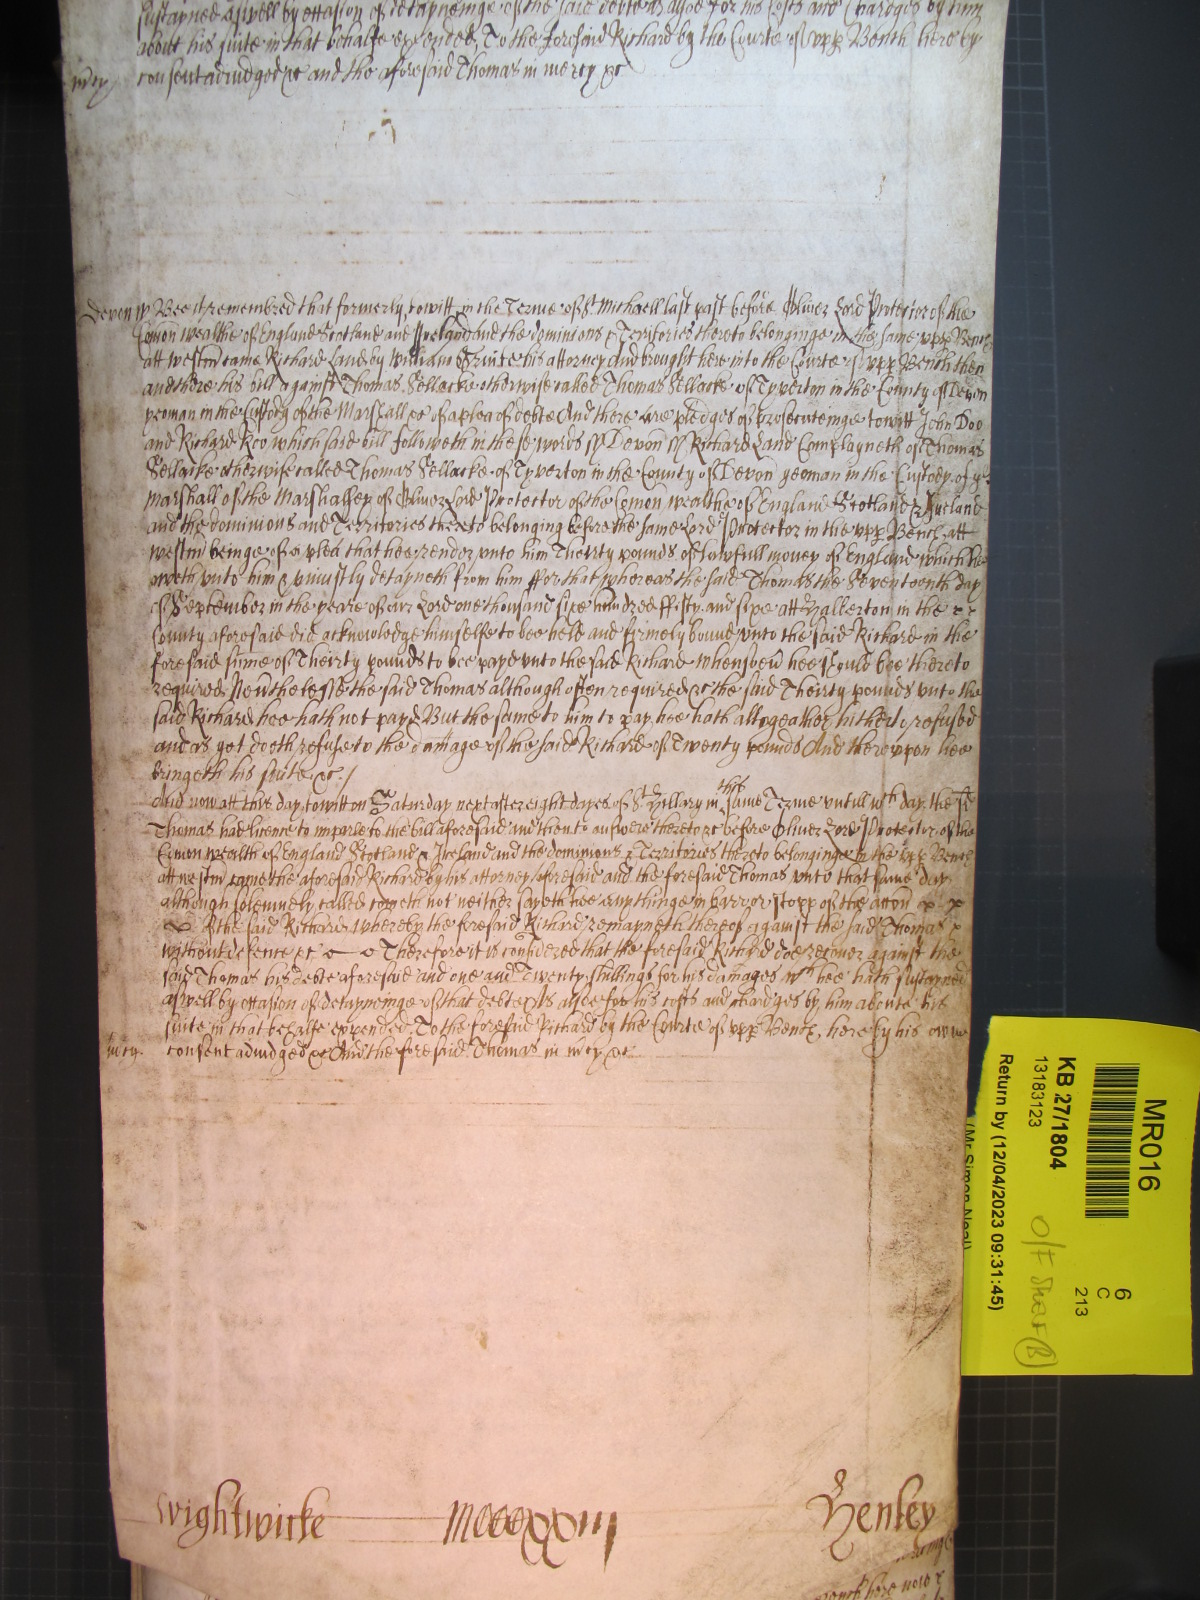 sustayned aswell by occasion of detayneinge of the said debte as alsoe for his Costs and Chardges by him
about his suite in that behalfe expended To the foresaid Richard by the Courte of upp Bench here by
mcy consent adiudged &c and the aforesaid Thomas in mercy &c
Devon ss Bee it remembred that formerly towitt in the Terme of St Michaell last past before Oliver Lord Protector of the
Comon wealthe of England Scotland and Ireland and the dominions & Territories thereto belonginge in the same upp Bench
att Westm came Richard Land by William his attorney and brought here into the Courte of upp Bench then
and there his bill against Thomas Sellacke otherwise called Thomas Sellacke of Tyverton in the County of Devon
yeoman in the Custody of the Marshall &c of a plea of debte And there are pledges of prosecuteinge towitt John Doo
and Richard Roo which said bill followeth in these words ss Devon ss Richard Land Complayneth of Thomas
Sellacke otherwise called Thomas Sellacke of Tyverton in the County of Devon yeoman in the Custody of ye
Marshall of the Marshalsey of Oliver Lord Protector of the Comon wealthe of England Scotland & Ireland
and the dominions and Territories thereto belonging before the same Lord Protector in the upp Bench att
Westm beinge of a plea that hee render unto him Theirty pounds of lawfull money of England which hee
oweth unto him & uniustly detayneth from him ffor that whereas the said Thomas the Seventeenth day
of September in the yeare of our Lord one thousand sixe hundred ffifty and sixe att Halberton in the
County aforesaid did acknowledge himselfe to bee held and firmely bound unto the said Richard in the
foresaid sume of Theirty pounds to bee payd unto the said Richard whensoever hee should bee thereto
required Nevthelesse the said Thomas although often required &c the said Theirty pounds unto the
said Richard hee hath not payd But the same to him to pay hee hath altogeather hitherto refused
and as yet dooth refuse to the damage of the said Richard of Twenty pounds And thereupon hee
bringeth his suite &c /
And now att this day towitt on Saturday next after eight dayes of St Hillary in this same Terme untill wch day the sd
Thomas had licence to imparle to the bill aforesaid and then to answere thereto &c before Oliver Lord Protector of the
Comon wealth of England Scotland & Ireland and the dominions & Territories thereto belonginge in the upp Bench
att Westm came the aforesaid Richard by his attorney aforesaid and the foresaid Thomas unto that same day
although solemnely called cometh not neither sayeth hee any thinge in barr or stopp of the accon
of the said Richard whereby the foresaid Richard remayneth thereof against the said Thomas
without defence &c Therefore it is considered that the foresaid Richard doe recover against the
said Thomas his debte aforesaid and one and Twenty shillings for his damages wch hee hath sustayned
aswell by occasion of detayneinge of that debte As alsoe for his costs and chardges by him aboute his
suite in that behalfe expended To the foresaid Richard by the Courte of upp Bench here by his owne
mcy consent adiudged &c And the foresaid Thomas in mcy &c
Wightwicke mcccxxiii Henley
MR016
KB 27/1804
13183123
Return by (12/04/2023 09:31:45)
6
C
213
(Mr Simon Neal)